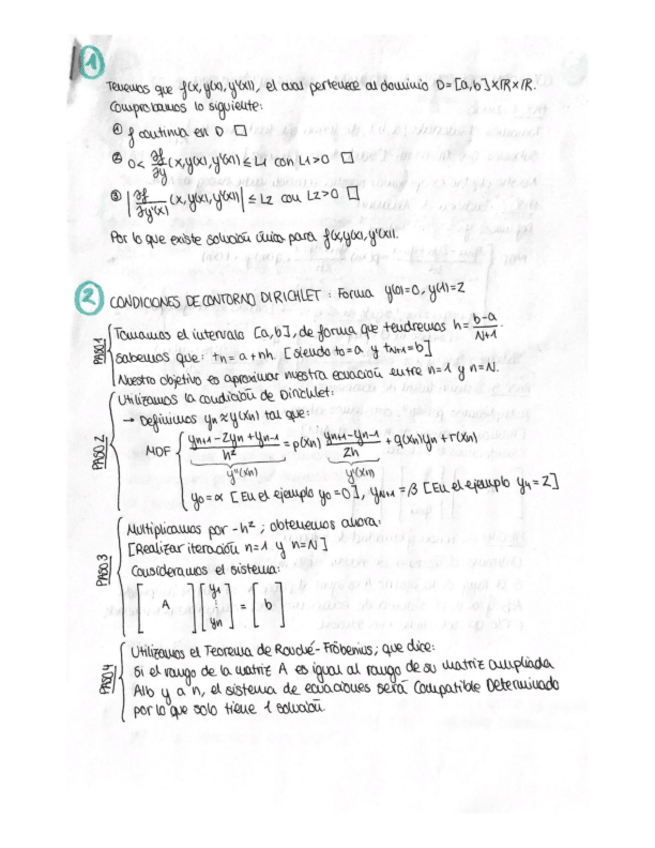 1
Tenemos que f(x, y(x), y'(x)), el cual pertenece al dominio D=[a,b]×ℝ×ℝ.
Comprobamos lo siguiente:
① f continua en D □
② 0< ∂f/∂y (x, y(x), y'(x)) ≤ L1 con L1>0 □
③ |∂f/∂y'(x) (x, y(x), y'(x))| ≤ L2 con L2>0 □
Por lo que existe solución única para f(x, y(x), y'(x)).
2 CONDICIONES DE CONTORNO DIRICHLET: Forma y(0)=0, y(1)=2
PASO 1
Tomamos el intervalo [a,b], de forma que tendremos h= (b-a)/(N+1).
Sabemos que: tn=a+nh. [Siendo t0=a y tN+1=b]
Nuestro objetivo es aproximar nuestra ecuación entre n=1 y n=N.
PASO 2
Utilizamos la condición de Dirichlet:
→ Definimos yn≈y(xn) tal que:
MDF { (yn+1-2yn+yn-1)/h² = p(xn) (yn+1-yn-1)/2h + q(xn)yn + r(xn)
y''(xn) y'(xn)
y0=α [En el ejemplo y0=0], yN+1=β [En el ejemplo y4=2]
PASO 3
Multiplicamos por -h²; obtenemos ahora:
[Realizar iteración n=1 y n=N]
Consideramos el sistema:
[A] [y1 ⋮ yn] = [b]
PASO 4
Utilizamos el Teorema de Rouché-Fröbenius; que dice:
Si el rango de la matriz A es igual al rango de su matriz ampliada
A|b y a n, el sistema de ecuaciones será Compatible Determinado
por lo que solo tiene 1 solución.